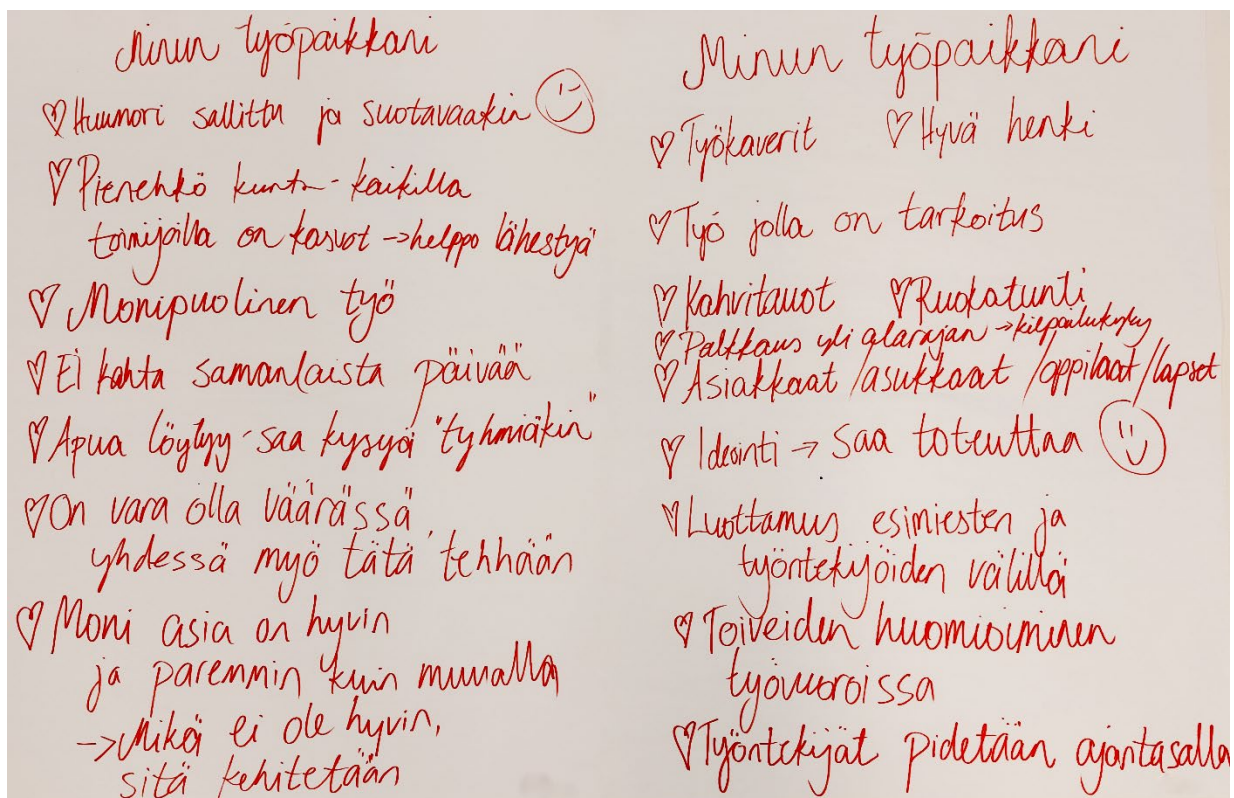 Minun työpaikkani
♡ Huumori sallittu ja suotavaakin
♡ Pienehkö kunta - kaikilla
toimijoilla on kasvot → helppo lähestyä
♡ Monipuolinen työ
♡ Ei kahta samanlaista päivää
♡ Apua löytyy - saa kysyä "tyhmiäkin"
♡ On vara olla väärässä,
yhdessä myö tätä tehhään
♡ Moni asia on hyvin
ja paremmin kuin muualla
→ Mikä ei ole hyvin,
sitä kehitetään
Minun työpaikkani
♡ Työkaverit ♡ Hyvä henki
♡ Työ jolla on tarkoitus
♡ Kahvitauot ♡ Ruokatunti
♡ Palkkaus yli alarajan → kilpailukyky
♡ Asiakkaat / asukkaat / oppilaat / lapset
♡ Ideointi → saa toteuttaa
♡ Luottamus esimiesten ja
työntekijöiden välillä
♡ Toiveiden huomioiminen
työvuoroissa
♡ Työntekijät pidetään ajantasalla